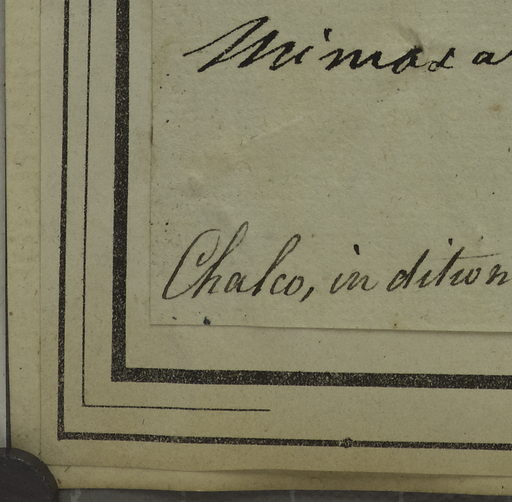 Mimosa
Chalco, in dition